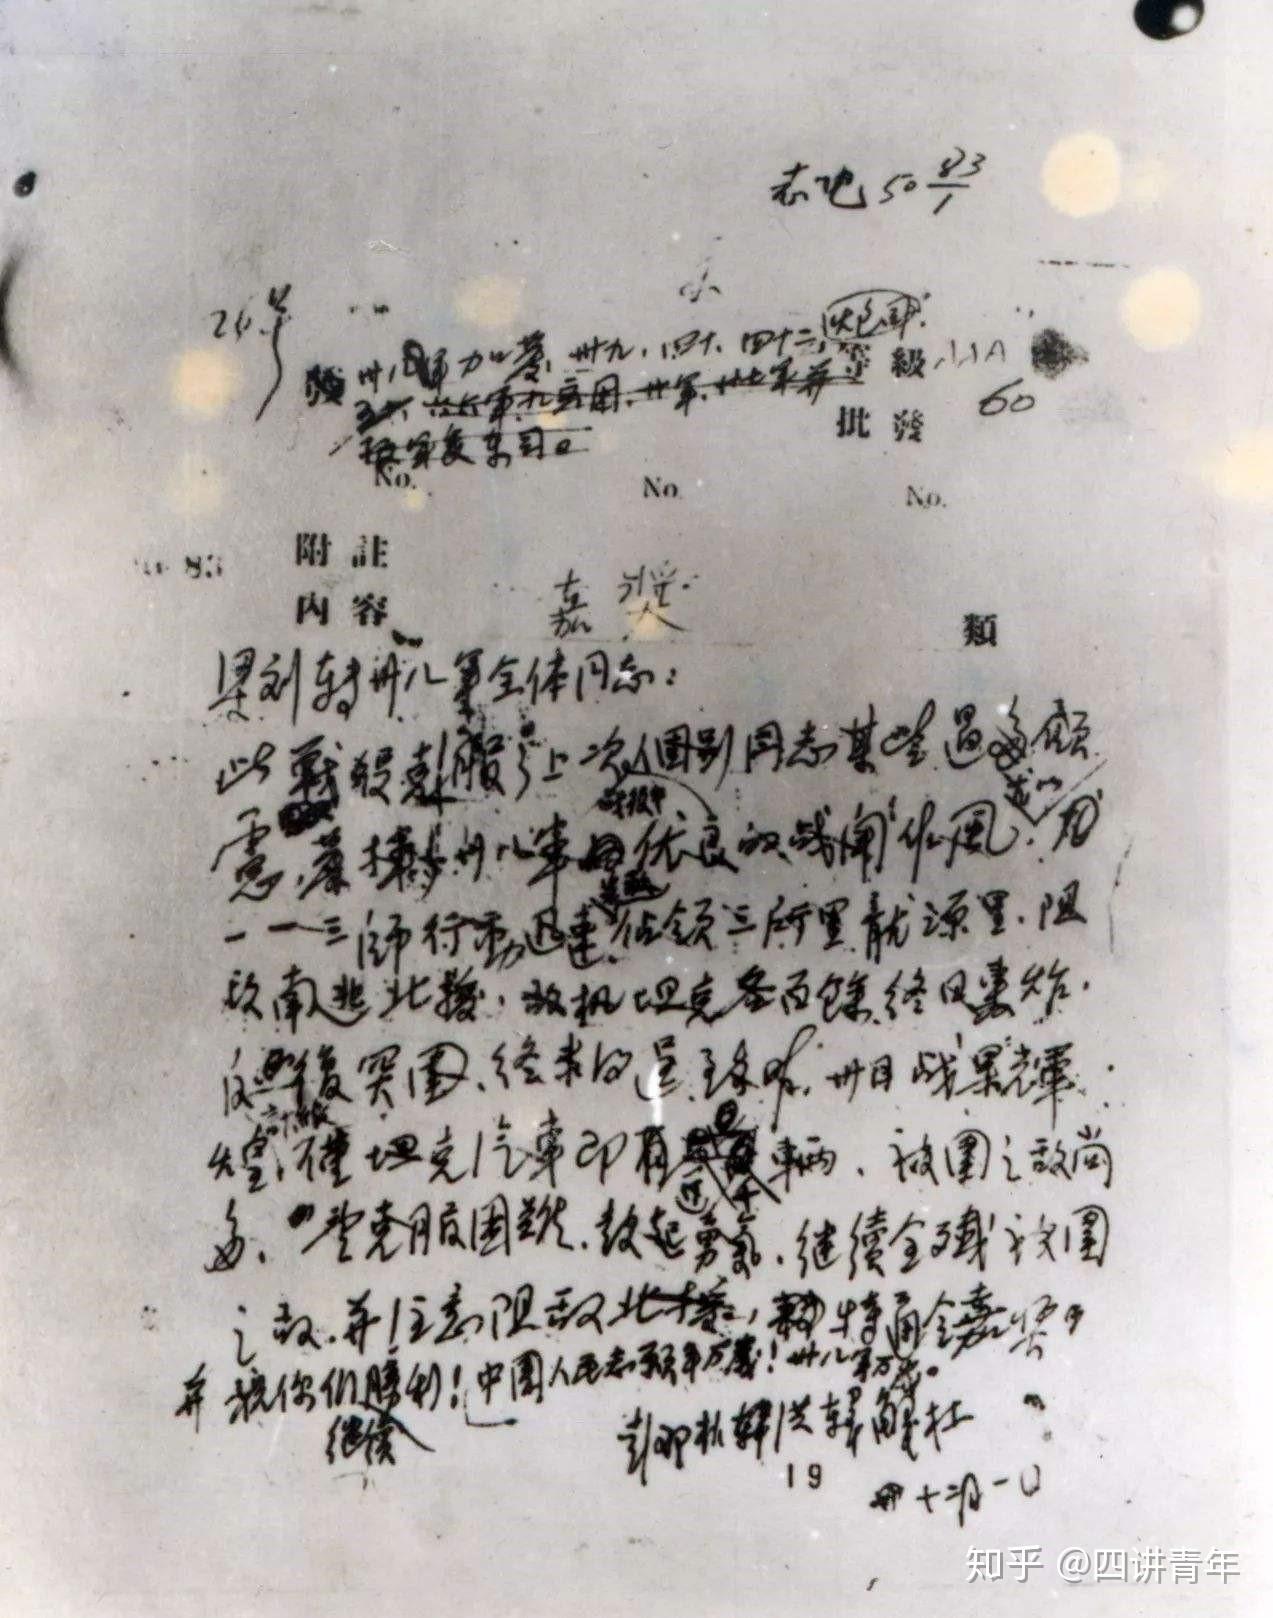 志司 50 83/1
26号
发 卅八军加奖，卅九，四十，四十二，
等級 AAA
批發 60
No. No. No.
83 附註
内容 嘉奖 類
梁刘转卅八军全体同志：
此战役克服了上次个别同志某些过多顾
虑，发挥了卅八军优良的战斗作风，尤以
一一三师行动迅速，占领三所里龙源里，阻
敌南逃北援。敌机坦克各百余终日轰炸，
反复突围，终未得逞。至昨卅日战果辉
煌，计缴仅坦克汽车即有近千辆，被围之敌尚
多。望克服困难，鼓起勇气，继续全歼被围
之敌，并注意阻敌北援，特通令嘉奖，
并祝你们继续胜利！中国人民志愿军万岁！卅八军万岁。
彭邓朴韩洪解杜
19
十二月一日
知乎 @四讲青年